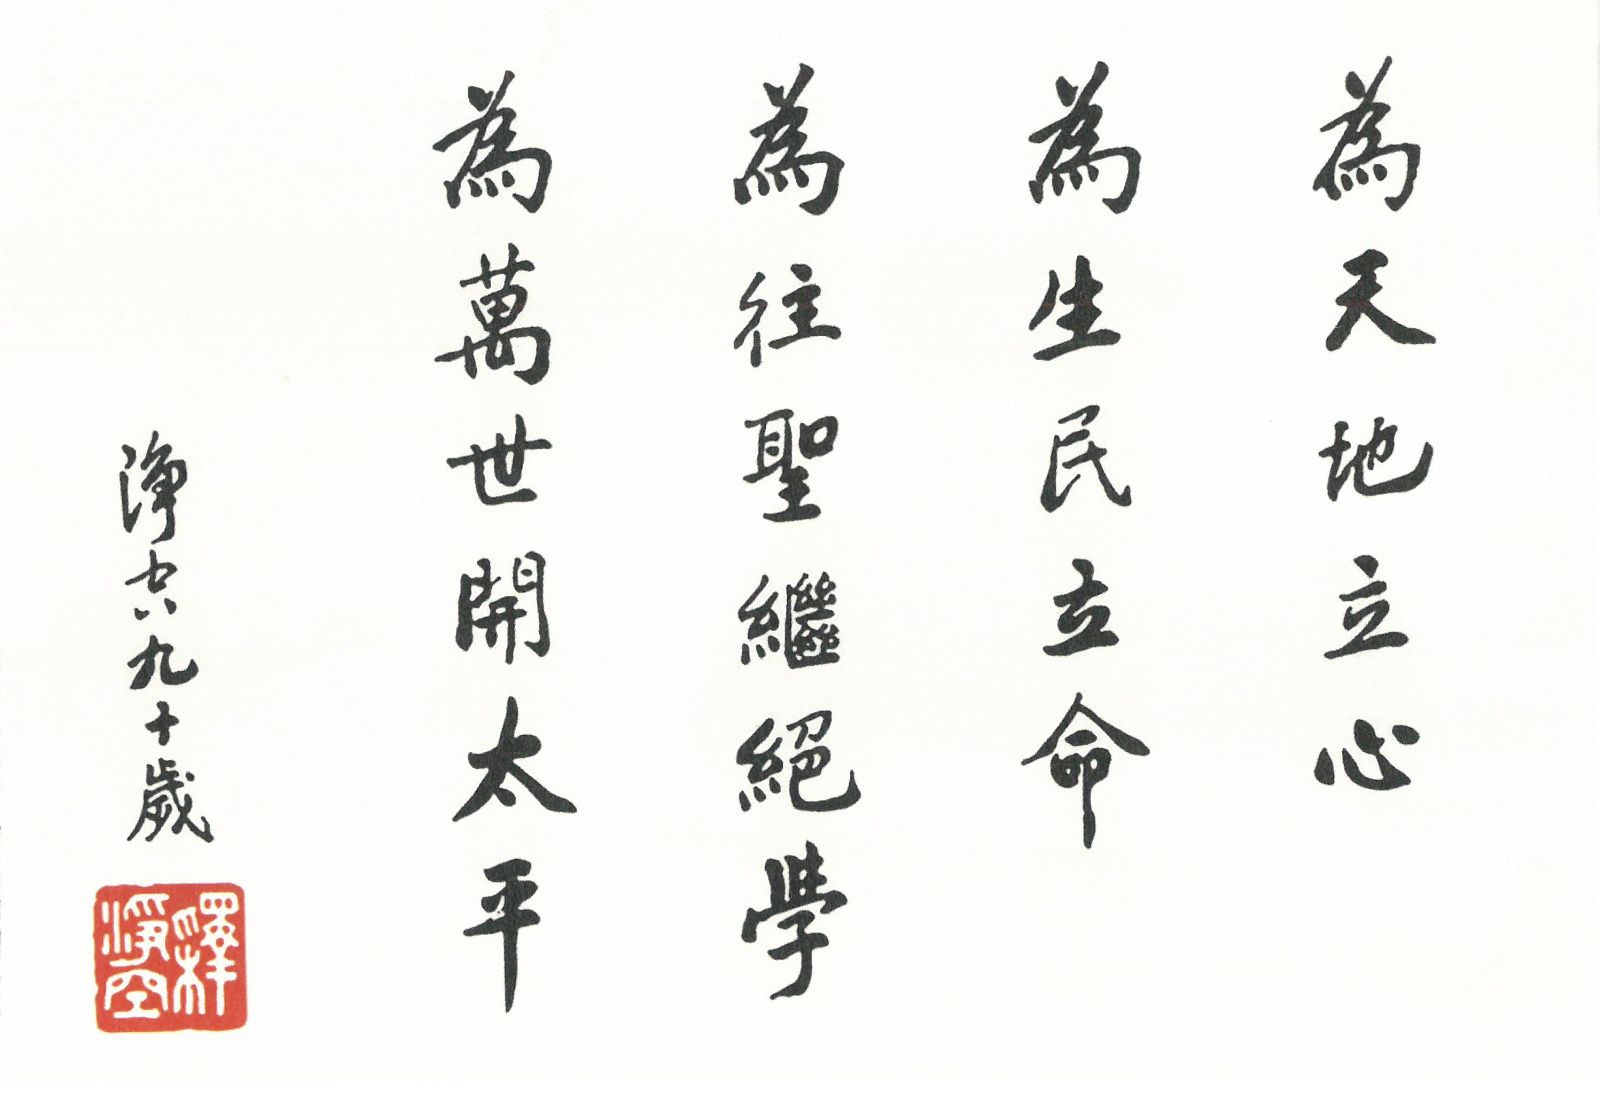 為天地立心
為生民立命
為往聖繼絕學
為萬世開太平
淨空九十歲
釋淨空